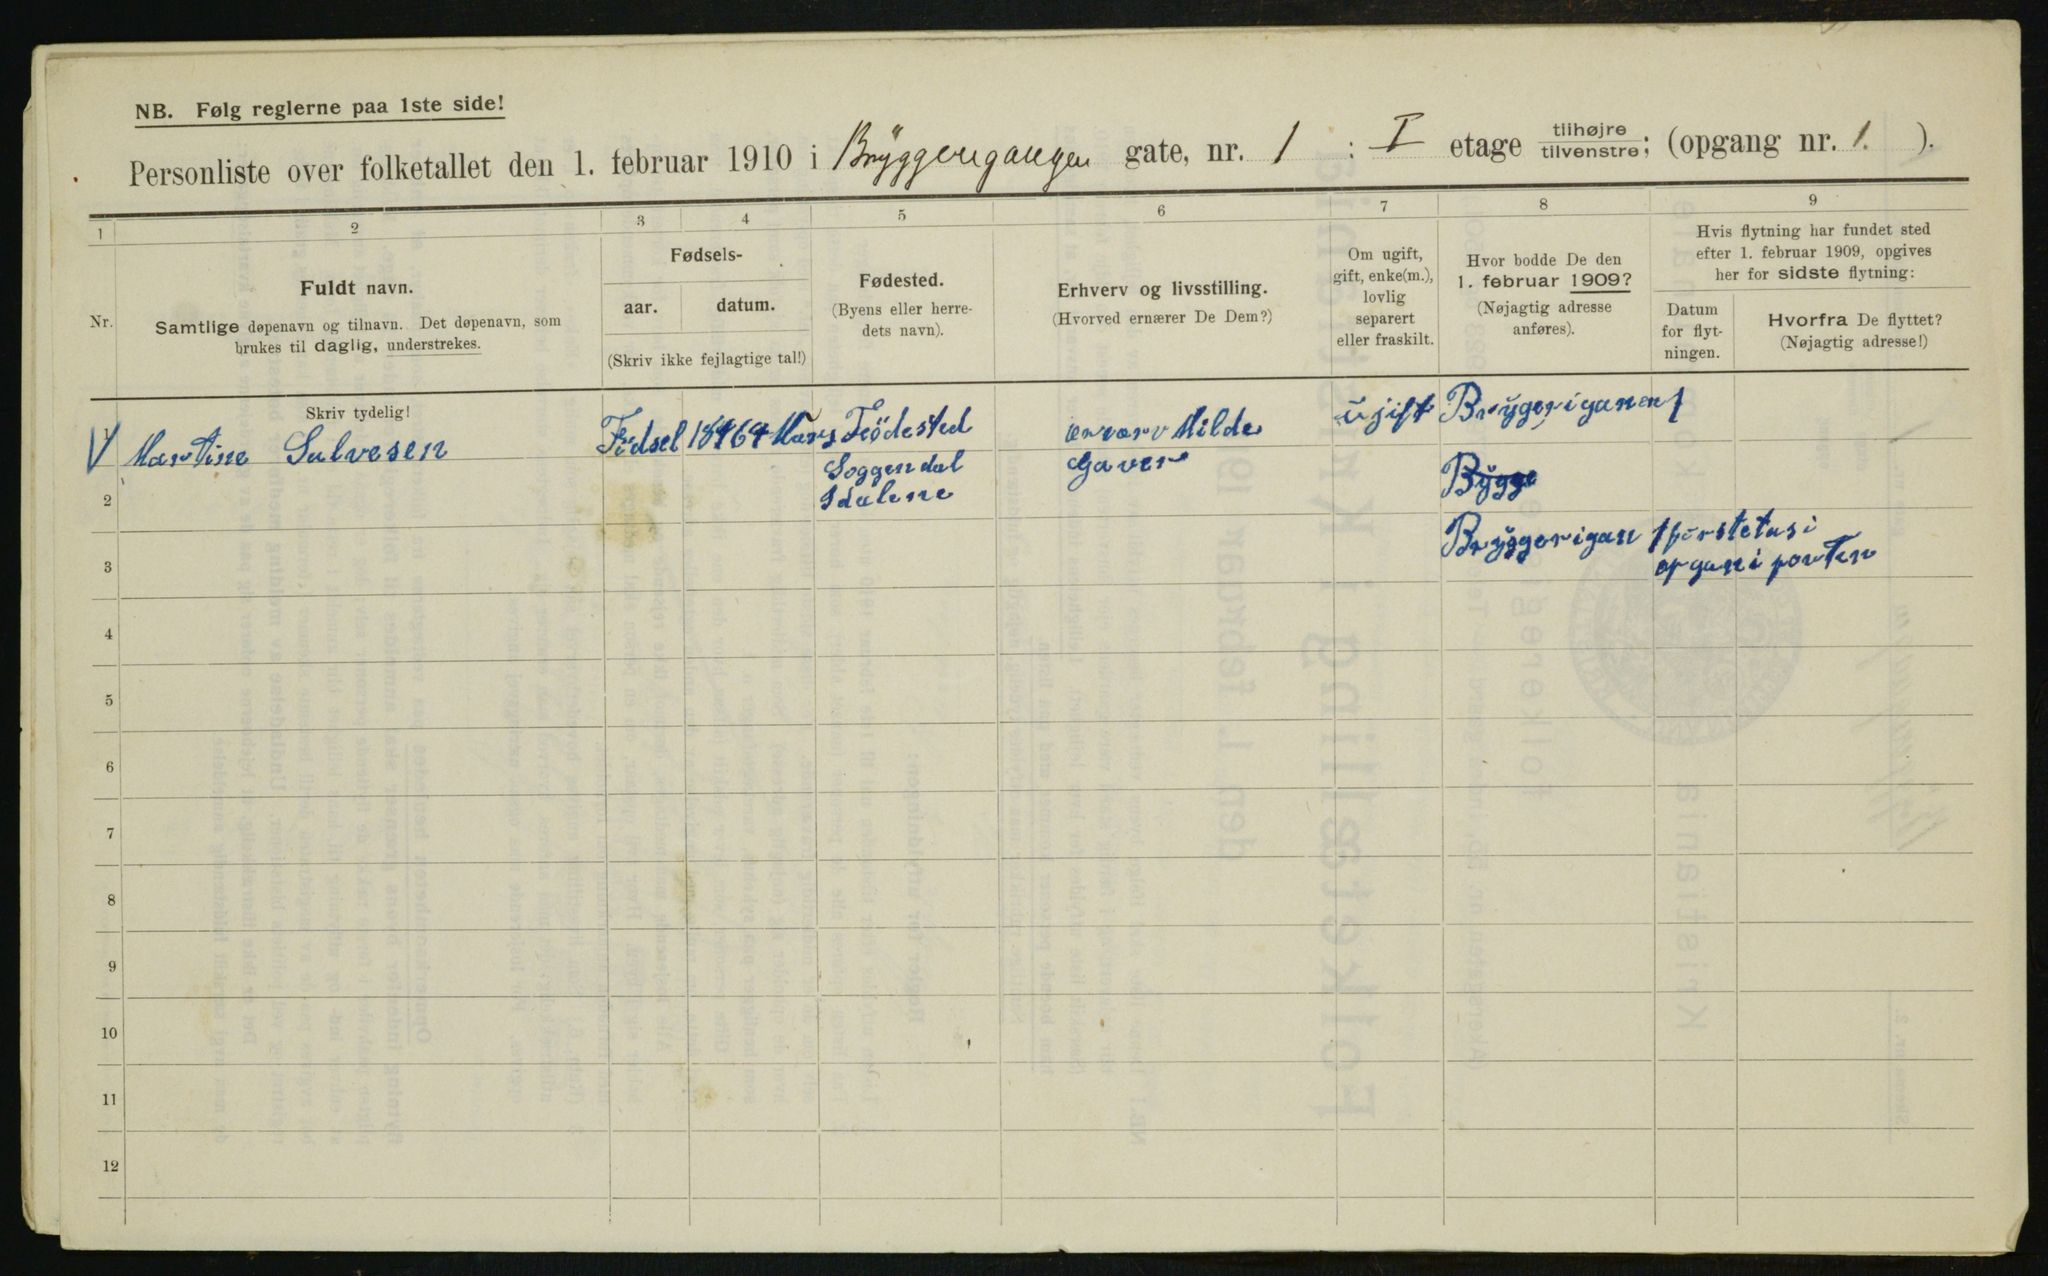 NB. Følg reglerne paa 1ste side!
Personliste over folketallet den 1. februar 1910 i Bryggerigangen gate, nr. 1 : I etage tilhøjre tilvenstre; (opgang nr. 1. ).
1 2 3 4 5 6 7 8 9
Nr.
Fuldt navn.
Samtlige døpenavn og tilnavn. Det døpenavn, som
brukes til daglig, understrekes.
Fødsels-
aar. datum.
(Skriv ikke fejlagtige tal!)
Fødested.
(Byens eller herre-
dets navn).
Erhverv og livsstilling.
(Hvorved ernærer De Dem?)
Om ugift,
gift, enke(m.),
lovlig
separert
eller fraskilt.
Hvor bodde De den
1. februar 1909?
(Nøjagtig adresse
anføres).
Hvis flytning har fundet sted
efter 1. februar 1909, opgives
her for sidste flytning:
Datum
for flyt-
ningen.
Hvorfra De flyttet?
(Nøjagtig adresse!)
Skriv tydelig!
1 Martine Salvesen Födsel Mars Födested Milde ugift Bryggeriganen 1
Soggendal Gaver
Idalene
2 Bygge
3 Bryggerigan 1 förstetasi
opgani porten
4
5
6
7
8
9
10
11
12